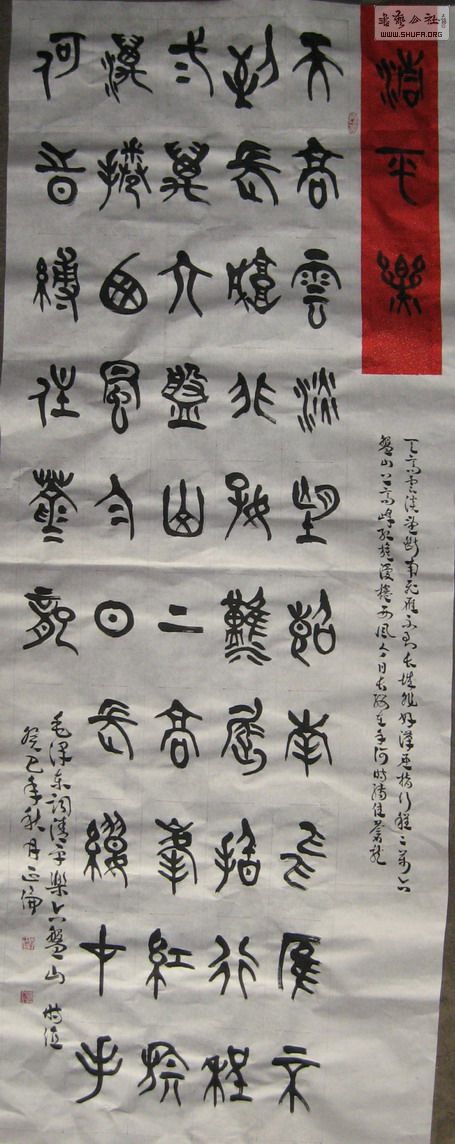 書藝公社
WWW.SHUFA.ORG
清平樂
天高雲淡望斷南飛雁不到長城非好漢屈指行程二萬六
盤山上高峰紅旗漫捲西風今日長纓在手何時縛住蒼龍
天高雲淡望斷南飛雁不
到長城非好漢屈指行程
二萬六盤山上高峰紅旗
漫捲西風今日長纓中手
何時縛住蒼龍
毛澤東詞清平樂六盤山 時值
癸巳年秋月正